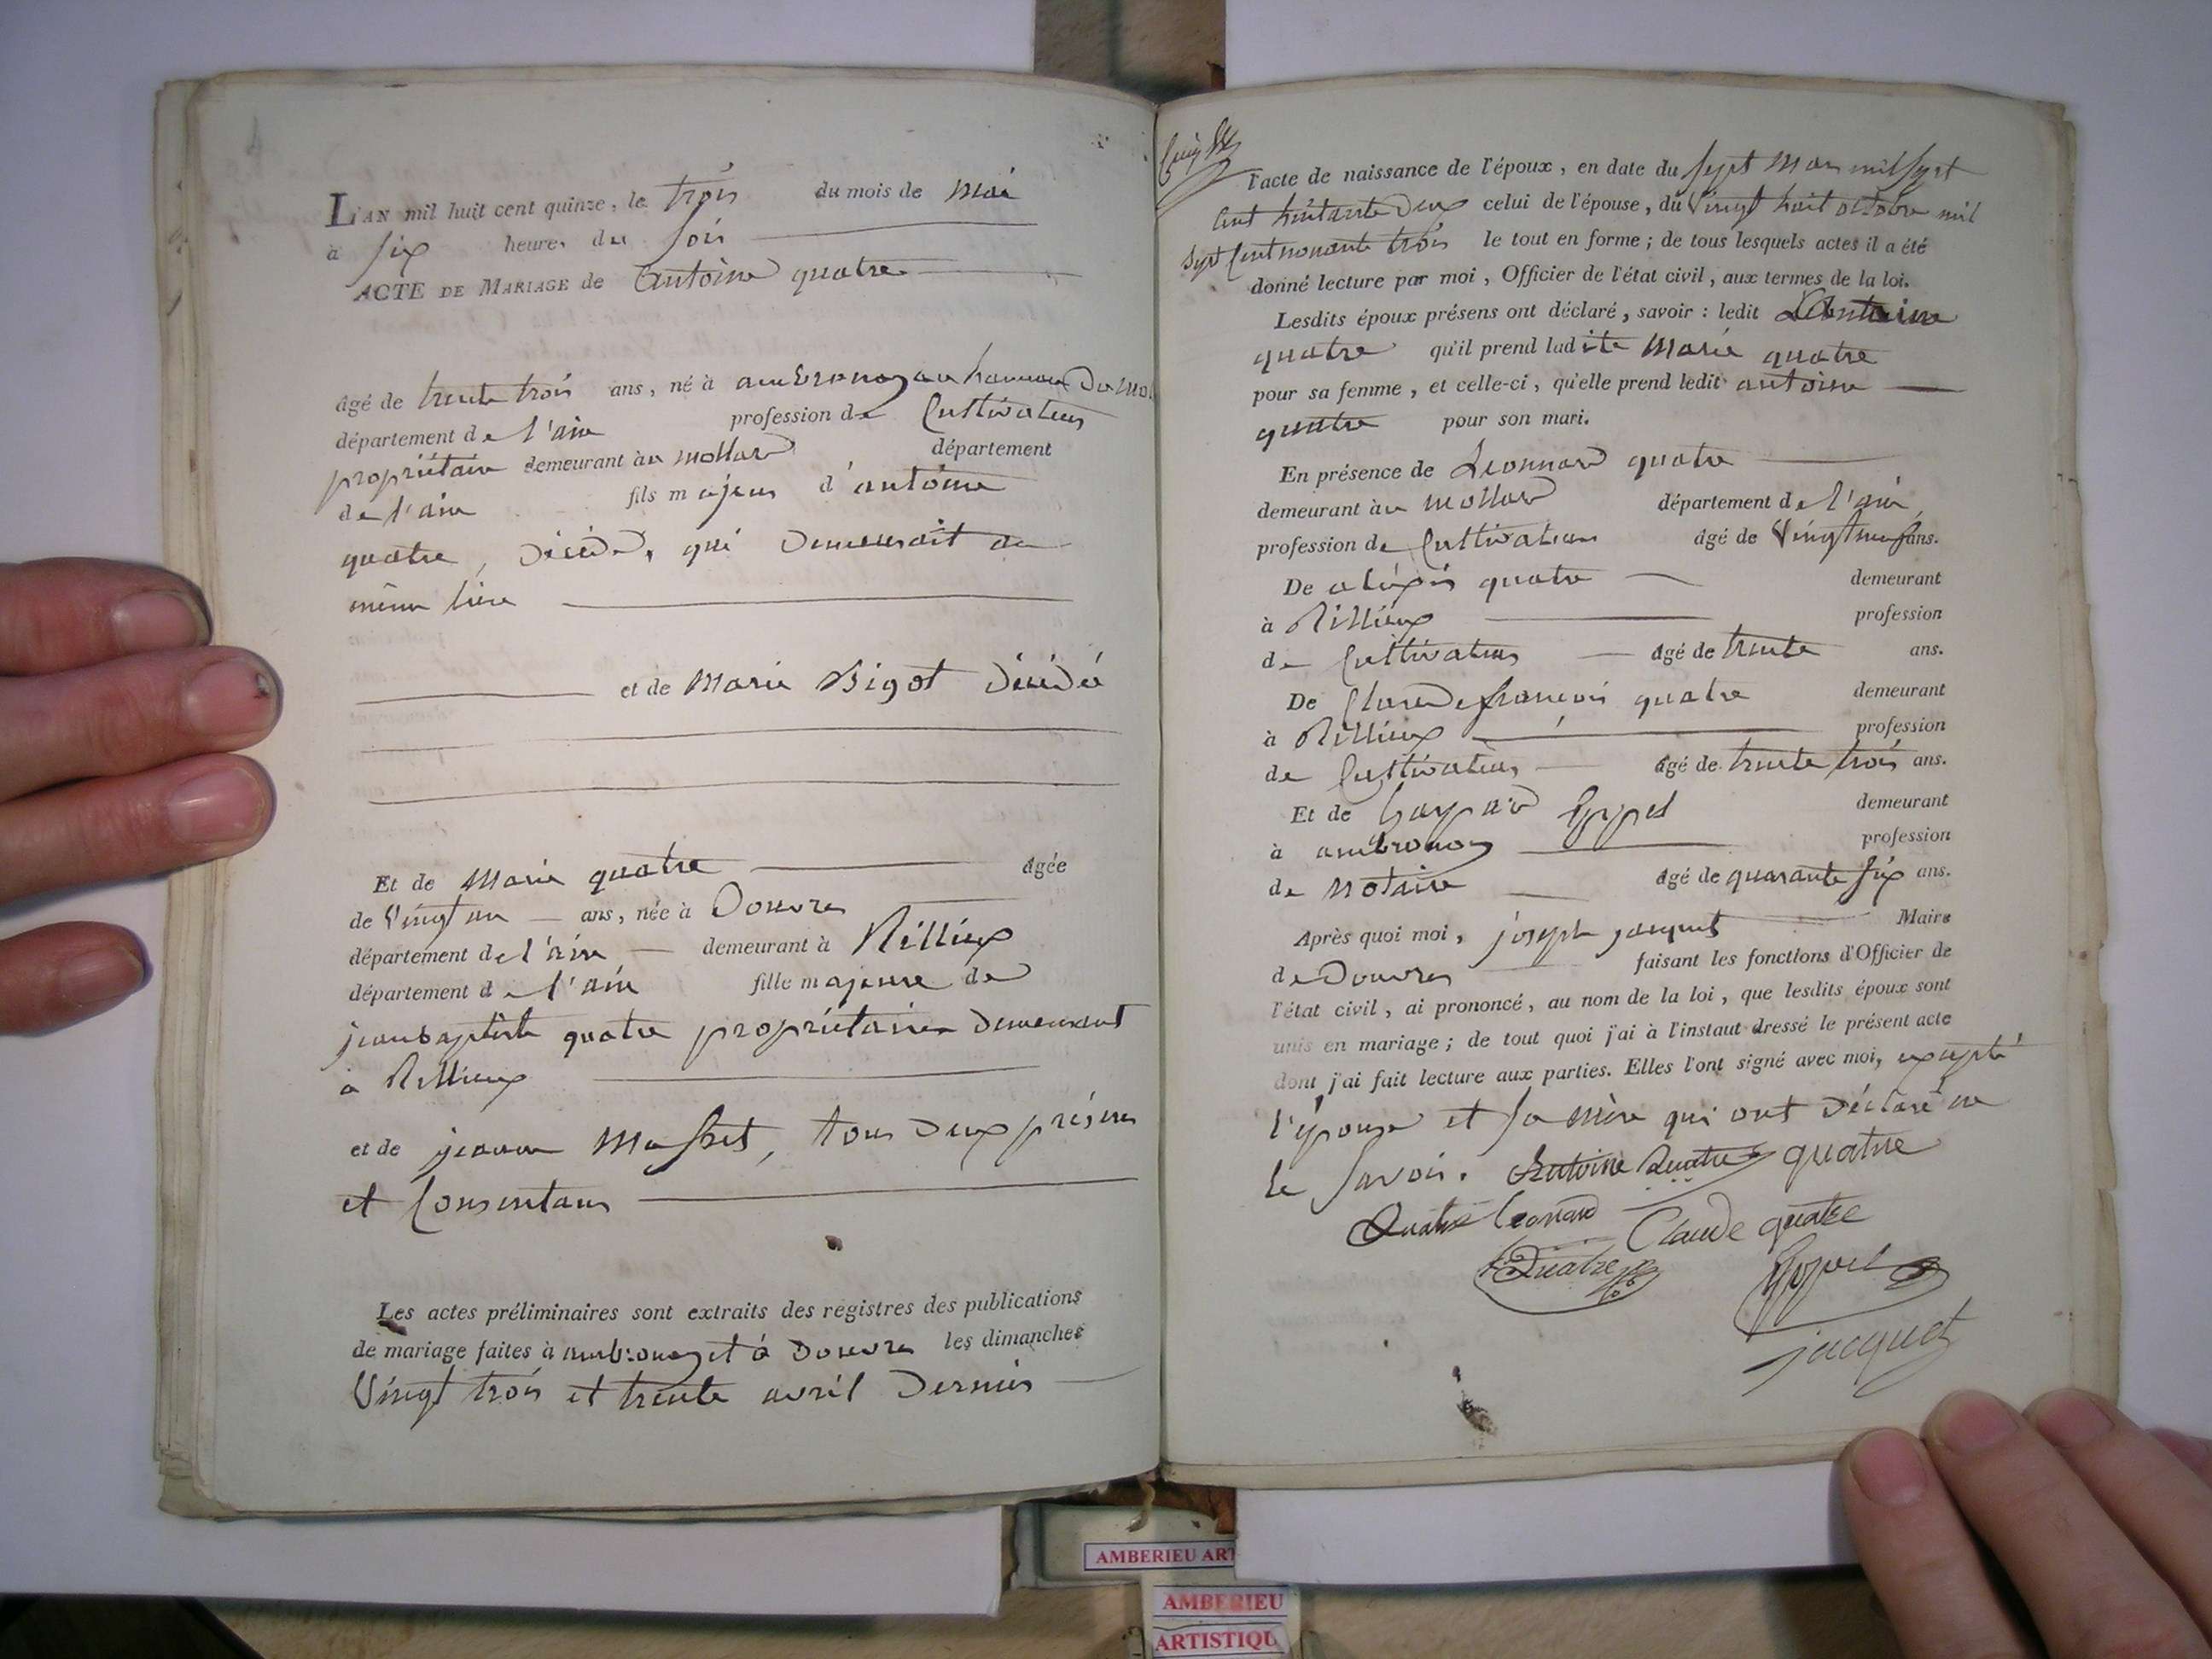 L'AN mil huit cent quinze, le trois du mois de mai
à six heures du soir
ACTE DE MARIAGE de antoine quatre
âgé de trente trois ans, né à ambronay au hameau du mol
département de l'ain profession de Cultivateur
propriétaire demeurant à au mollard département
de l'ain fils majeur d'antoine
quatre, décédé, qui demeurait au
même lieu
et de marie Bigot décédée
Et de marie quatre âgée
de vingt un ans, née à Douvres
département de l'ain demeurant à Rillieux
département de l'ain fille majeure de
jeanbaptiste quatre propriétaire demeurant
à Rillieux
et de jeanne, tous deux présens
et Consentans
Les actes préliminaires sont extraits des registres des publications
de mariage faites à ambronay et à Douvres les dimanches
Vingt trois et trente avril dernier
l'acte de naissance de l'époux, en date du sept mars mil sept
cent huitante deux celui de l'épouse, du vingt huit octobre mil
sept cent nonante trois le tout en forme; de tous lesquels actes il a été
donné lecture par moi, Officier de l'état civil, aux termes de la loi.
Lesdits époux présens ont déclaré, savoir: ledit Antoine
quatre qu'il prend ladite marie quatre
pour sa femme, et celle-ci, qu'elle prend ledit antoine
quatre pour son mari.
En présence de Leonnard quatre
demeurant à au mollard département de l'ain
profession de Cultivateur âgé de vingt neuf ans.
De alexis quatre demeurant
à Rillieux profession
de Cultivateur âgé de trente ans.
De Claude françois quatre demeurant
à Rillieux profession
de Cultivateur âgé de trente trois ans.
Et de Gaspard demeurant
à ambronay profession
de notaire âgé de quarante six ans.
Après quoi moi, joseph jacquet Maire
de Douvres faisant les fonctions d'Officier de
l'état civil, ai prononcé, au nom de la loi, que lesdits époux sont
unis en mariage; de tout quoi j'ai à l'instant dressé le présent acte
dont j'ai fait lecture aux parties. Elles l'ont signé avec moi, excepté
l'épouse et sa mère qui ont déclaré ne
le savoir. Antoine Quatre quatre
Quatre Leonard Claude quatre
Quatre
jacquet
AMBERIEU ART
AMBERIEU
ARTISTIQU